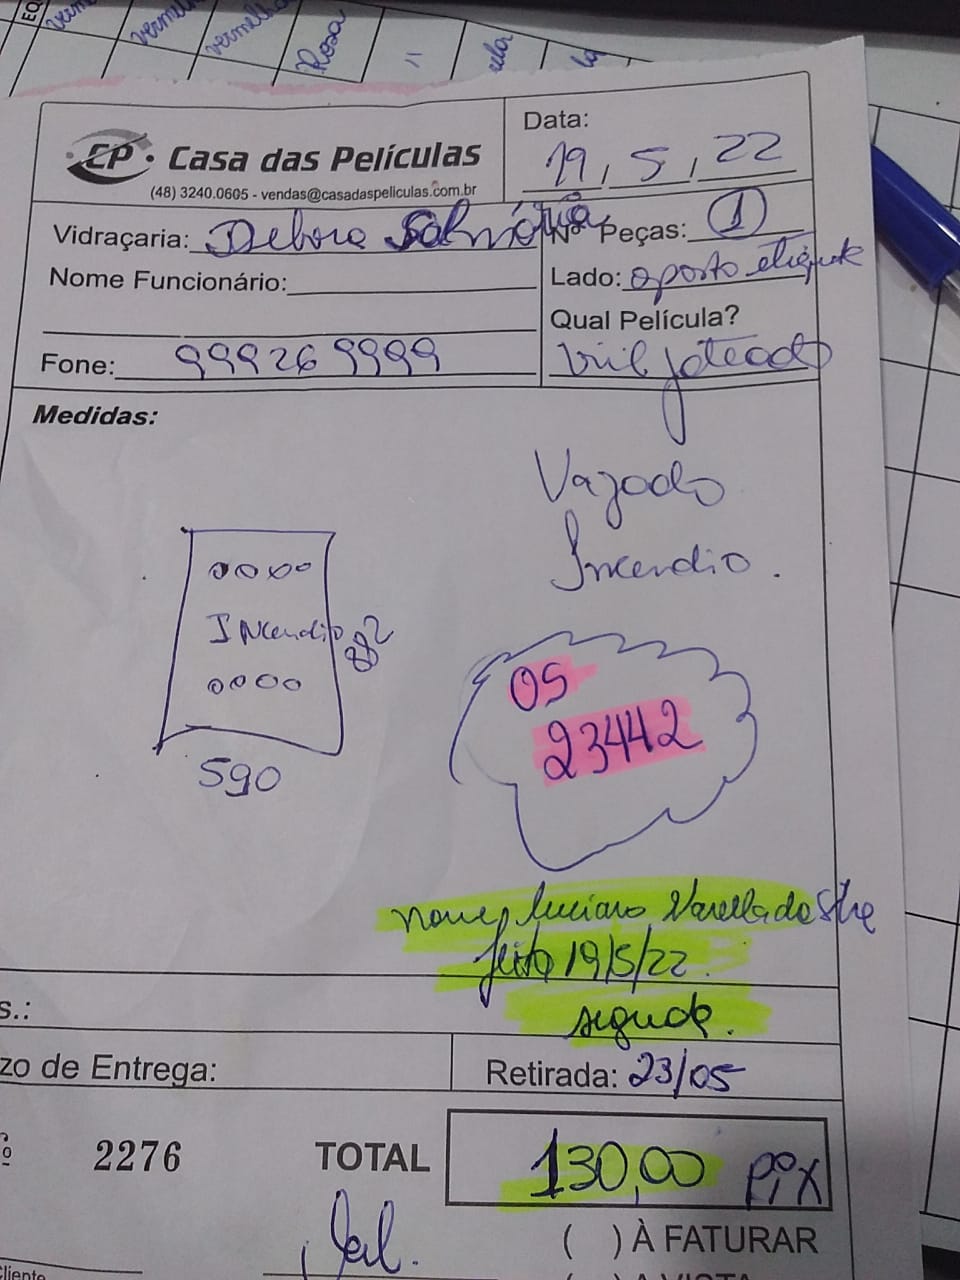 EQ
vermelho
vermelho
Rosa
"
CP. Casa das Películas
(48) 3240.0605 - vendas@casadaspeliculas.com.br
Data: 19, 5, 22
Vidraçaria: Debora
Nº Peças: 1
Nome Funcionário:
Lado: oposto
Qual Película?
Fone: 999269999
jateado
Medidas:
Vazado
Incendio.
0000
Incendio
0000
590
OS
23442
Luciano
feito 19/5/22
segunda.
s.:
zo de Entrega:
Retirada: 23/05
º 2276
TOTAL 130,00 pix
( ) À FATURAR
Cliente